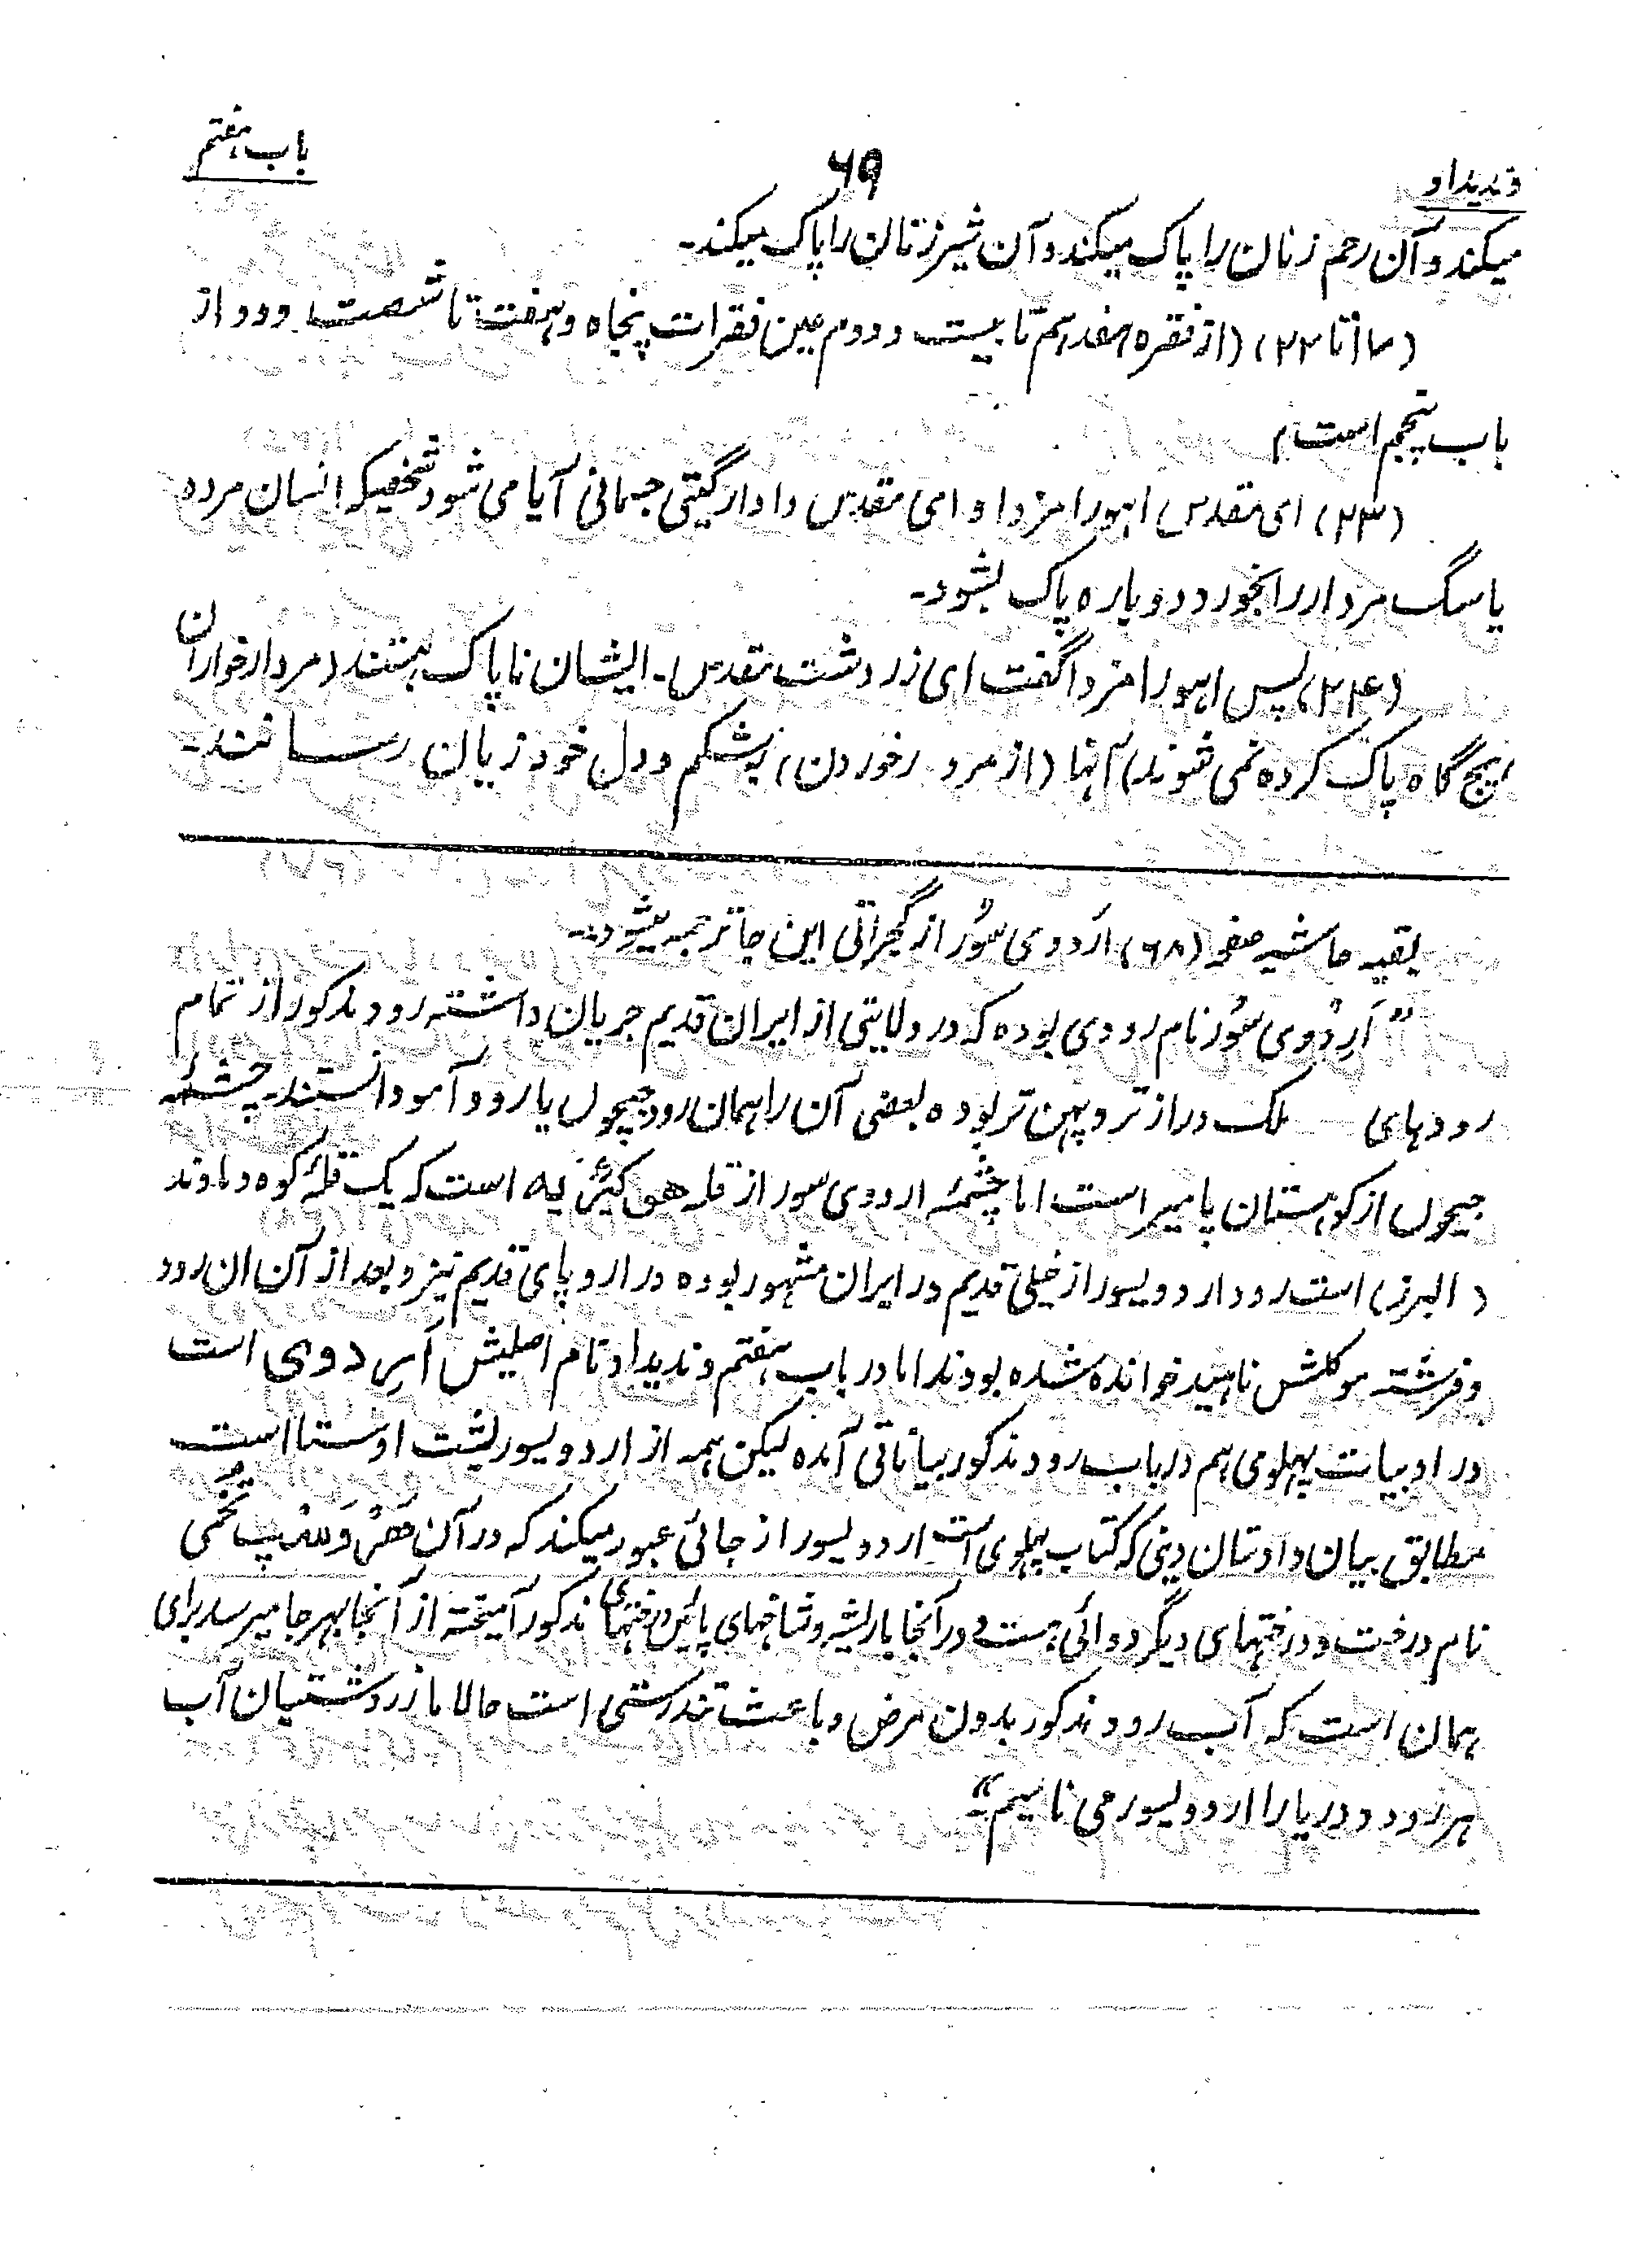 وندیداد
۶۹
باب هفتم
میکند و آن رحم زنان را پاک میکند و آن شیر زنان را پاک میکند۔
(۱۷ تا ۲۲) (از فقره هفدهم تا بیست و دوم عین فقرات پنجاه و هفت تا شصت و دو از
باب پنجم است)
(۲۳) ای مقدس اهورا مزدا و ای مقدس دادار گیتی جسمانی آیا می شود شخصیکه انسان مرده
یا سگ مردار را بخورد دوباره پاک بشود۔
(۲۴) پس اهورا مزدا گفت ای زردشت مقدس۔ ایشان ناپاک هستند (مردار خواران
هیچ گاه پاک کرده نمی شوند) آنها (از مردار خوردن) بشکم و دل خود زیان رسانند۔
بقیه حاشیه صفحه (۶۸) اَردوی سُور از گجراتی این جا ترجمه میشود:۔
”اَرِدْوی سُور نام رودی بوده که در ولایتی از ایران قدیم جریان داشته رود مذکور از تمام
رودهای ملک دراز تر و پهن تر بوده بعضی آن را همان رود جیحون یا رود آمو دانستند۔ چشمهٔ
جیحون از کوهستان پامیر است اما چشمهٔ اردوی سور از قلهٔ است که یک قلهٔ کوه دماوند
(البرز) است رود اردویسور از خیلی قدیم در ایران مشهور بوده در اروپای قدیم نیز و بعد از آن ان رود
و فرشتهٔ موکلش ناهید خوانده شده بودند اما در باب هفتم وندیداد نام اصلیش اَرِدوی است
در ادبیات پهلوی هم در باب رود مذکور بیاناتی آمده لیکن همه از اردویسور یشت اوستا است
مطابق بیان دادستان دینی که کتاب پهلوی است اردویسور از جائی عبور میکند که در آن تخمی
نام درخت و درختهای دیگر دوائی هست و در آنجا با ریشه و شاخهای پائین درختهای مذکور آمیخته از آنجا بهر جا میرسد برای
همان است که آب رود مذکور بدون مرض و باعث تندرستی است حالا ما زردشتیان آب
هر رود و دریا را اردویسور می نامیم“۔